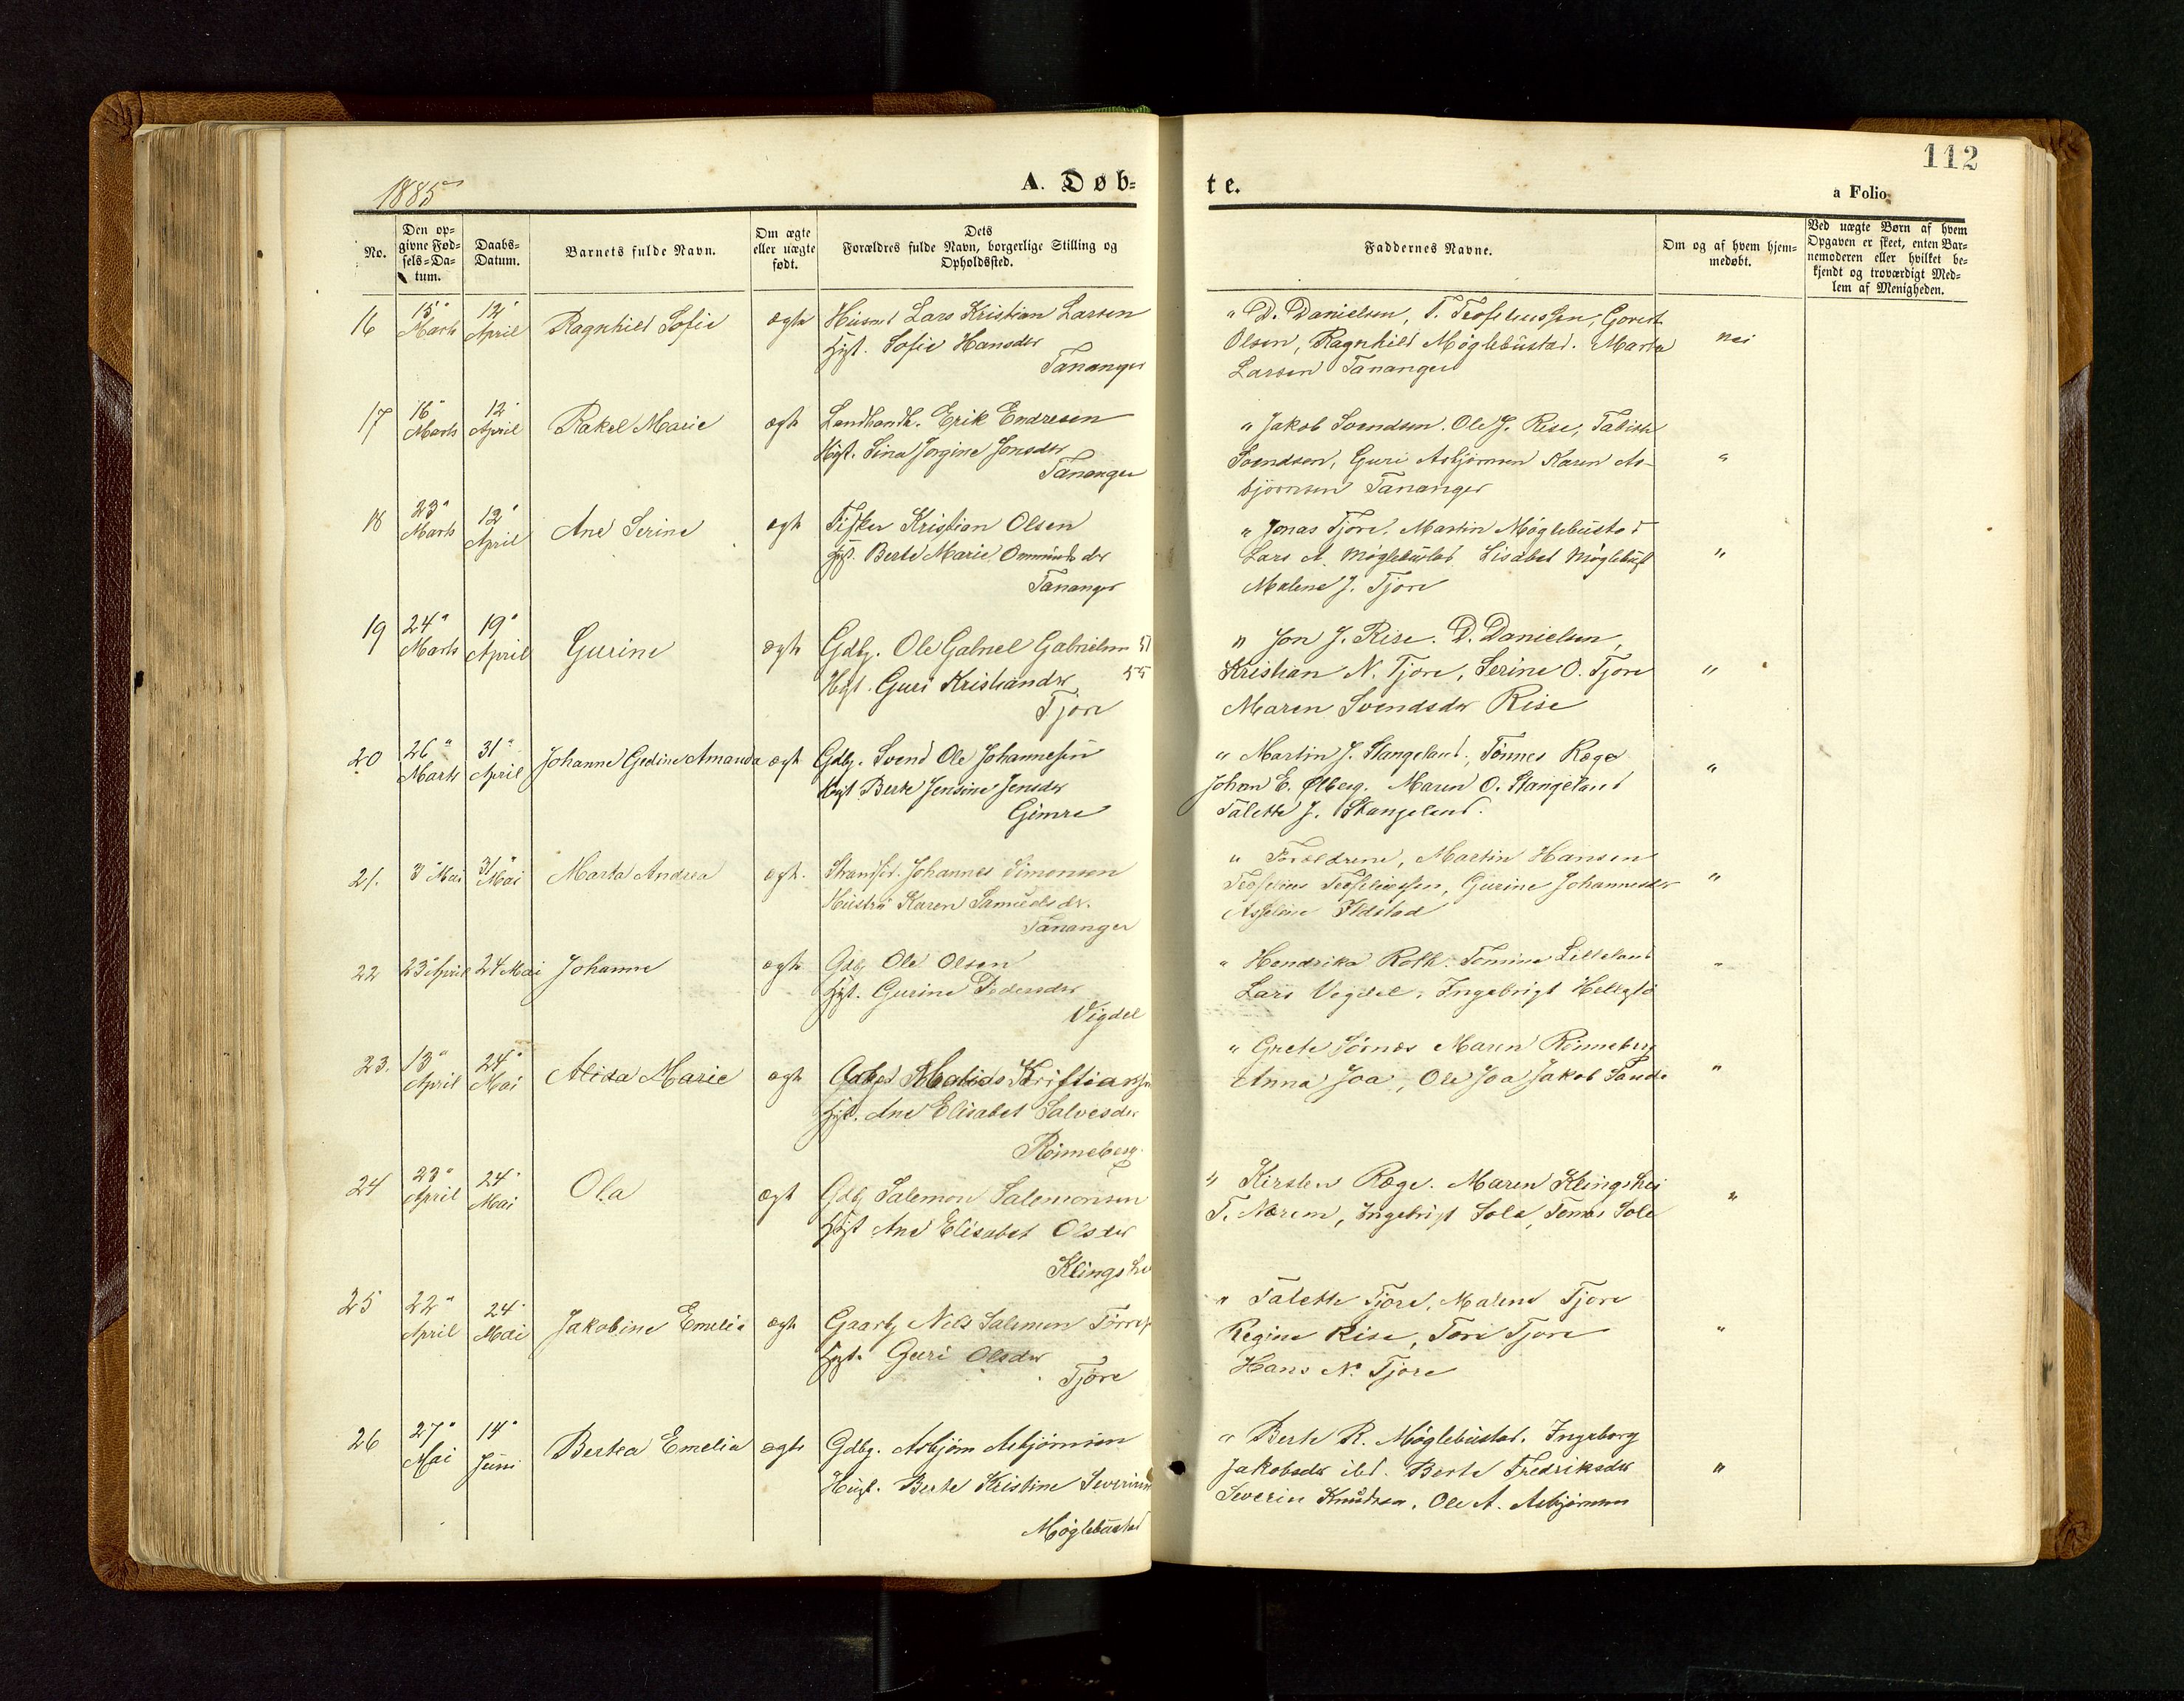 112
1885
A. Døb=
te.
a Folio.
No.
Den op=
givne Fød=
sels=Da=
tum.
Daabs=
Datum.
Barnets fulde Navn.
Om ægte
eller uægte
født.
Dets
Forældres fulde Navn, borgerlige Stilling og
Opholdssted.
Faddernes Navne.
Om og af hvem hjem=
medøbt.
Ved uægte Børn af hvem
Opgaven er skeet, enten Bar=
nemoderen eller hvilket be=
kjendt og troværdigt Med=
lem af Menigheden.
16
15"
Marts
12"
April
Ragnhild Sofie
ægte
Husmd Lars Kristian Larsen
Hgt. Sofie Hansdr
Tananger
" D. Danielsen, T. Teofeliussen,
Olsen, Ragnhild Møglebustad. Marta
Larsen Tananger
nei
17
16"
Marts
12"
April
Rakel Marie
ægte
Landhandl. Erik Endresen
Hgt. Sina Jorgine Jonsdr
Tananger
" Jakob Svendsen. Ole J. Rise, Tabitha
Svendsen, Guri Asbjørnsen Karen As-
bjørnsen Tananger
"
18
23"
Marts
12"
April
Ane Serine
ægte
Fisker Kristian Olsen
Hgt. Berte Marie Ommunds dr
Tananger
" Jonas Tjore, Martin Møglebustad
Lars A. Møglebustad Lisabet Møglebust
Malene J. Tjore
"
19
24"
Marts
19"
April
Gurine
ægte
Gdbg. Ole Gabriel Gabrielsen 51
Hgt. Guri Kristiandr 55
Tjore
" Jon J. Rise. D. Danielsen,
Kristian N. Tjore, Serine O. Tjore
Maren Svendsdr Rise
"
20
26"
Marts
31"
April
Johanne Gedine Amanda
ægt
Gdbg. Svend Ole Johannesen
Hgt Berte Jensine Jensdr
Gimre
" Martin J. Stangeland, Tønnes Rege
Johan E. Ølberg. Maren O. Stangeland
Talette J. Stangeland.
"
21.
3" Mai
31"
Mai
Marta Andrea
ægt.
Johannes Simonsen
Hustru Karen Samuelsdr.
Tananger
" Forældrene, Martin Hansen
Teofelius Teofeliussen, Gurine Johannesdr
"
22
23" April
24 Mai
Johanne
ægte
Gdbg Ole Olsen
Hgt. Gurine Pedersdr
Vigdel
" Hendrika Roth. Tomine Lilleland
Lars Vegdel, Ingebrigt
"
23.
13"
April
24"
Mai
Alida Marie
ægte
Kristiansen
Hgt. Ane Elisabet Salvesdr
Rønneberg
" Grete Sørnes Maren Rønneberg
Anna Joa, Ole Joa Jakob Sande
"
24
23"
April
24"
Mai
Ola
ægt
Gdbg Salemon Salemonsen
Hgt Ane Elisabet Olsdr
Klingshei
" Kirsten Rege. Maren Klingshei
T. Nærem, Ingebrigt Sola, Tomas Sola
"
25
22"
April
24"
Mai
Jakobine Emelia
ægte
Gaarbg Nels Salemon
Hgt. Guri Olsdr
Tjore
" Talette Tjore, Malene Tjore
Regine Rise, Tore Tjore
Hans N. Tjore
"
26
27"
Mai
14"
Juni
Bertea Emelia
ægte
Gdbg. Asbjørn Asbjørnsen
Hugt. Berte Kristine
Møglebustad
" Berte R. Møglebustad. Ingeborg
Jakobsdr ibd. Berte Fredriksdr
Severin Knudsen, Ole A. Asbjørnsen
"